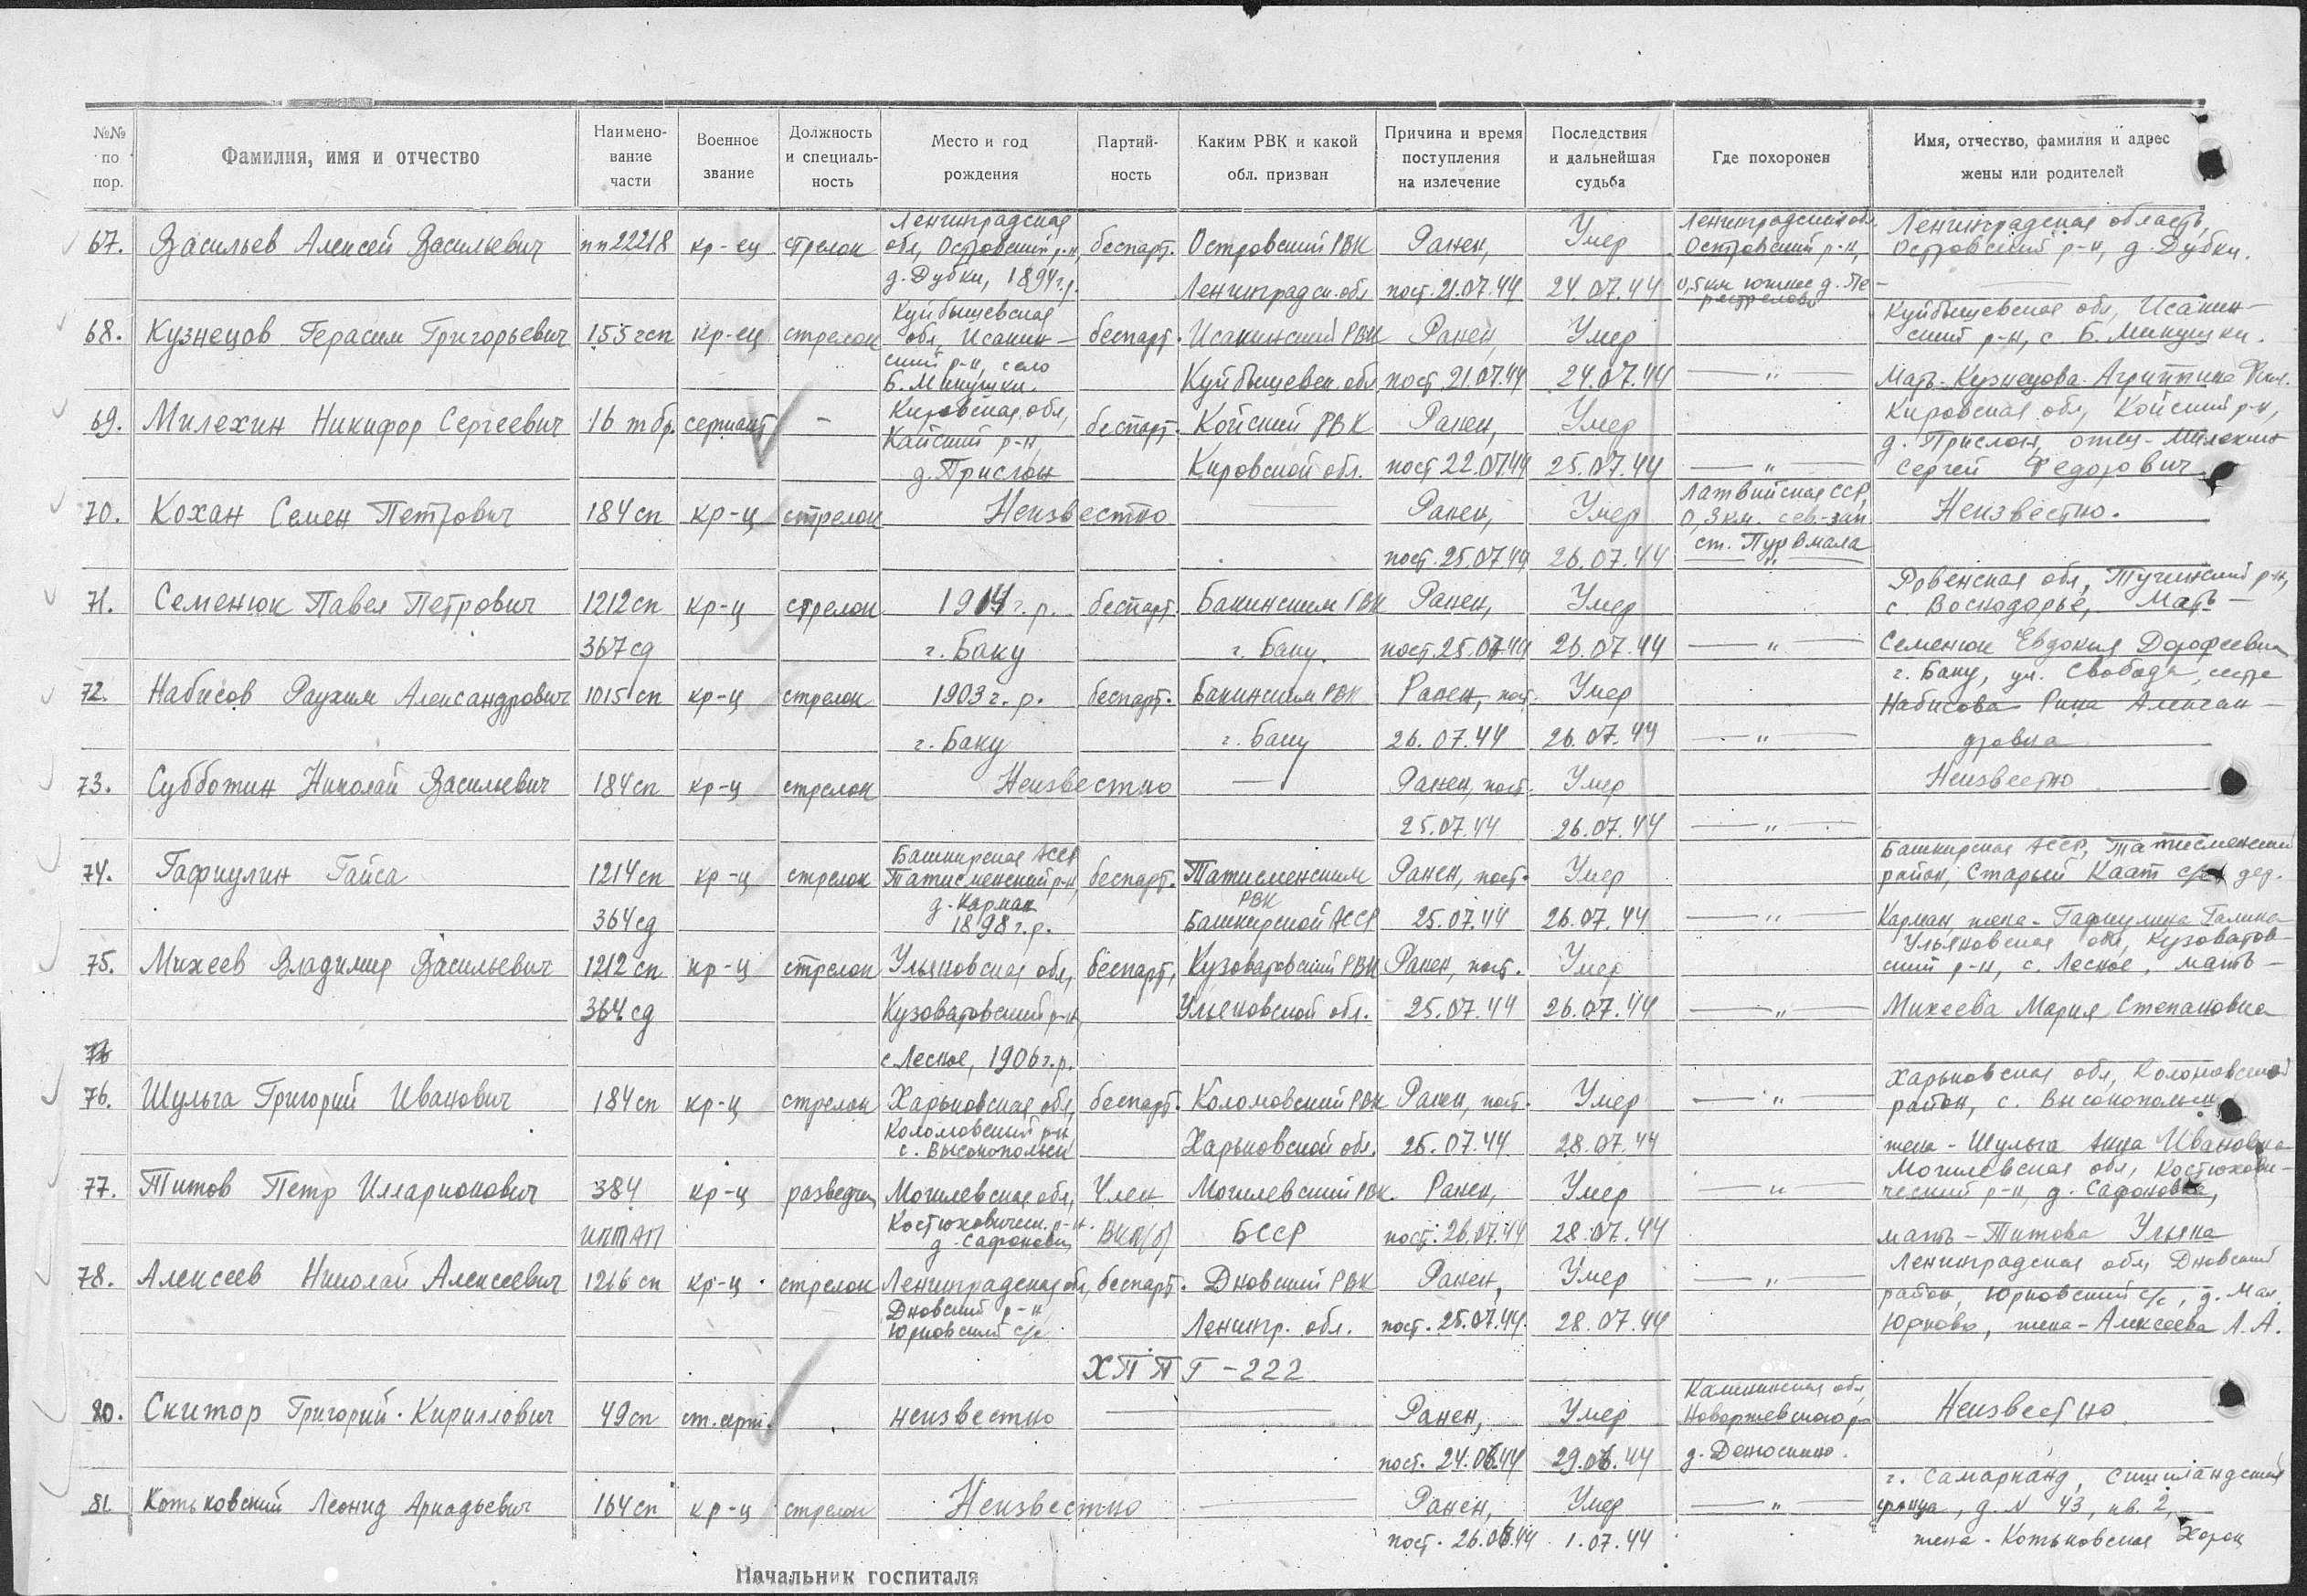 №№ по пор. Фамилия, имя и отчество Наимено- вание части Военное звание Должность и специаль- ность Место и год рождения Партий- ность Каким РВК и какой обл. призван Причина и время поступления на излечение Последствия и дальнейшая судьба Где похоронен Имя, отчество, фамилия и адрес жены или родителей
67. Васильев Алексей Васильевич пп22218 кр-ец стрелок Ленинградская обл, Островский р-н, д. Дубки, 1894г.р. беспарт. Островский РВК Ленинградск. обл Ранен, пост. 21.07.44 Умер 24.07.44 Ленинградская обл, Островский р-н, 0,5 км южнее д. Ленинградская область, Островский р-н, д. Дубки.
68. Кузнецов Герасим Григорьевич 155 гсп кр-ец стрелок Куйбышевская обл, Исаклин- ский р-н, село Б. Микушки. беспарт. РВК Куйбышевск. обл Ранен, пост. 21.07.44 Умер 24.07.44 — " — Куйбышевская обл, ский р-н, с. Б. Микушки. Мать - Кузнецова Агриппина
69. Милехин Никифор Сергеевич 16 тбр. сержант — Кировская обл, Кайский р-н, д. Прислон беспарт. Койский РВК Кировской обл. Ранен, пост 22.07.44 Умер 25.07.44 — " — Кировская обл, Койский р-н, д. Прислон, отец - Милехин Сергей Федорович
70. Кохан Семен Петрович 184 сп кр-ц стрелок Неизвестно Ранен, пост. 25.07.44 Умер 26.07.44 Латвийская ССР, 0,3 км. сев.-зап ст. Пурвмала — " — Неизвестно.
71. Семенюк Павел Петрович 1212 сп 367 сд кр-ц стрелок 1914 г.р. г. Баку беспарт. Бакинским РВК г. Баку. Ранен, пост. 25.07.44 Умер 26.07.44 — " — Ровенская обл, Тучинский р-н, с. Воскодарье, Мать - Семенюк Евдокия Дорофеевна
72. Набисов Раухим Александрович 1015 сп кр-ц стрелок 1903 г. р. г. Баку беспарт. Бакинским РВК г. Баку Ранен, пост. 26.07.44 Умер 26.07.44 — " — г. Баку, ул. Свобода, Набисова дровна
73. Субботин Николай Васильевич 184 сп кр-ц стрелок Неизвестно — Ранен, пост. 25.07.44 Умер 26.07.44 — " — Неизвестно
74. Гафиулин Гайса 1214 сп 364 сд кр-ц стрелок Башкирская АССР Татисменский р-н, д. Карман 1898 г.р. беспарт. Татисменским РВК Башкирской АССР Ранен, пост. 25.07.44 Умер 26.07.44 — " — Башкирская АССР, Татисменский район, Старый Каат с/с дер. Карман, жена - Гафиулина Галина
75. Михеев Владимир Васильевич 1212 сп 364 сд кр-ц стрелок Ульяновская обл, Кузоватовский р-н, с. Лесное, 1906 г.р. беспарт. Кузоватовский РВК Ульяновской обл. Ранен, пост. 25.07.44 Умер 26.07.44 — " — Ульяновская обл, Кузоватов- ский р-н, с. Лесное, мать - Михеева Мария Степановна
76. Шульга Григорий Иванович 184 сп кр-ц стрелок Харьковская обл, Коломовский р-н с. Высокопольем беспарт. Коломовский РВК Харьковской обл. Ранен, пост. 26.07.44 Умер 28.07.44 — " — Харьковская обл, район, с. Высокопольем жена - Шульга Анна Ивановна
77. Титов Петр Илларионович 384 ИПТАП кр-ц разведчик Могилевская обл, Костюкович. р-н. д. Сафоновка Член ВКП(б) Могилевский РВК БССР Ранен, пост. 26.07.44 Умер 28.07.44 — " — Могилевская обл, Костюкови- ческий р-н, д. Сафоновка, мать - Титова Ульяна
78. Алексеев Николай Алексеевич 1266 сп кр-ц стрелок Ленинградская обл, Дновский р-н, Юрковский с/с беспарт. Дновский РВК Ленингр. обл. Ранен, пост. 25.07.44. Умер 28.07.44 — " — Ленинградская обл, Дновский район, Юрковский с/с, д. Мал. Юрково, жена - Алексеева А.А.
ХППГ - 222
80. Скитор Григорий Кириллович 49 сп ст. серж. неизвестно Ранен, пост. 24.06.44 Умер 29.06.44 Калининская обл, Новоржевского р-на д. Неизвестно
81. Котьковский Леонид Аркадьевич 164 сп кр-ц стрелок Неизвестно Ранен, пост. 26.06.44 Умер 1.07.44 — " — г. Самарканд, улица, д. № 43, кв. 2, жена - Котьковская
Начальник госпиталя